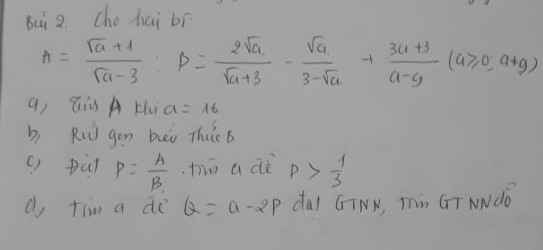 Bài 2. Cho hai bt
A = \frac{\sqrt{a}+1}{\sqrt{a}-3} ; B = \frac{2\sqrt{a}}{\sqrt{a}+3} - \frac{\sqrt{a}}{3-\sqrt{a}} + \frac{3a+3}{a-9} (a≥0, a≠9)
a, Tính A khi a = 16
b, Rút gọn biểu thức B.
c, Đặt P = \frac{A}{B}. tìm a để P > \frac{1}{3}
d, tìm a để Q = a - 2P đạt GTNN, tìm GTNN đó